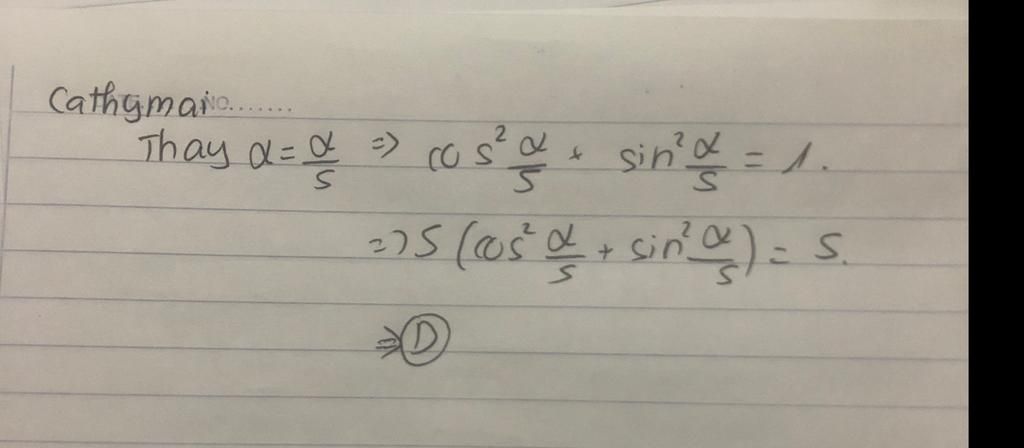 CathymaiNo.......
Thay α = α/5 => cos² α/5 + sin² α/5 = 1.
=> 5 (cos² α/5 + sin² α/5) = 5.
=> D